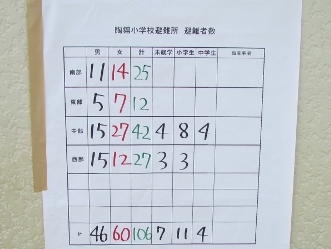 陶鎔小学校避難所 避難者数
男 女 計 未就学 小学生 中学生
南部 11 14 25
東部 5 7 12
中部 15 27 42 4 8 4
西部 15 12 27 3 3
計 46 60 106 7 11 4